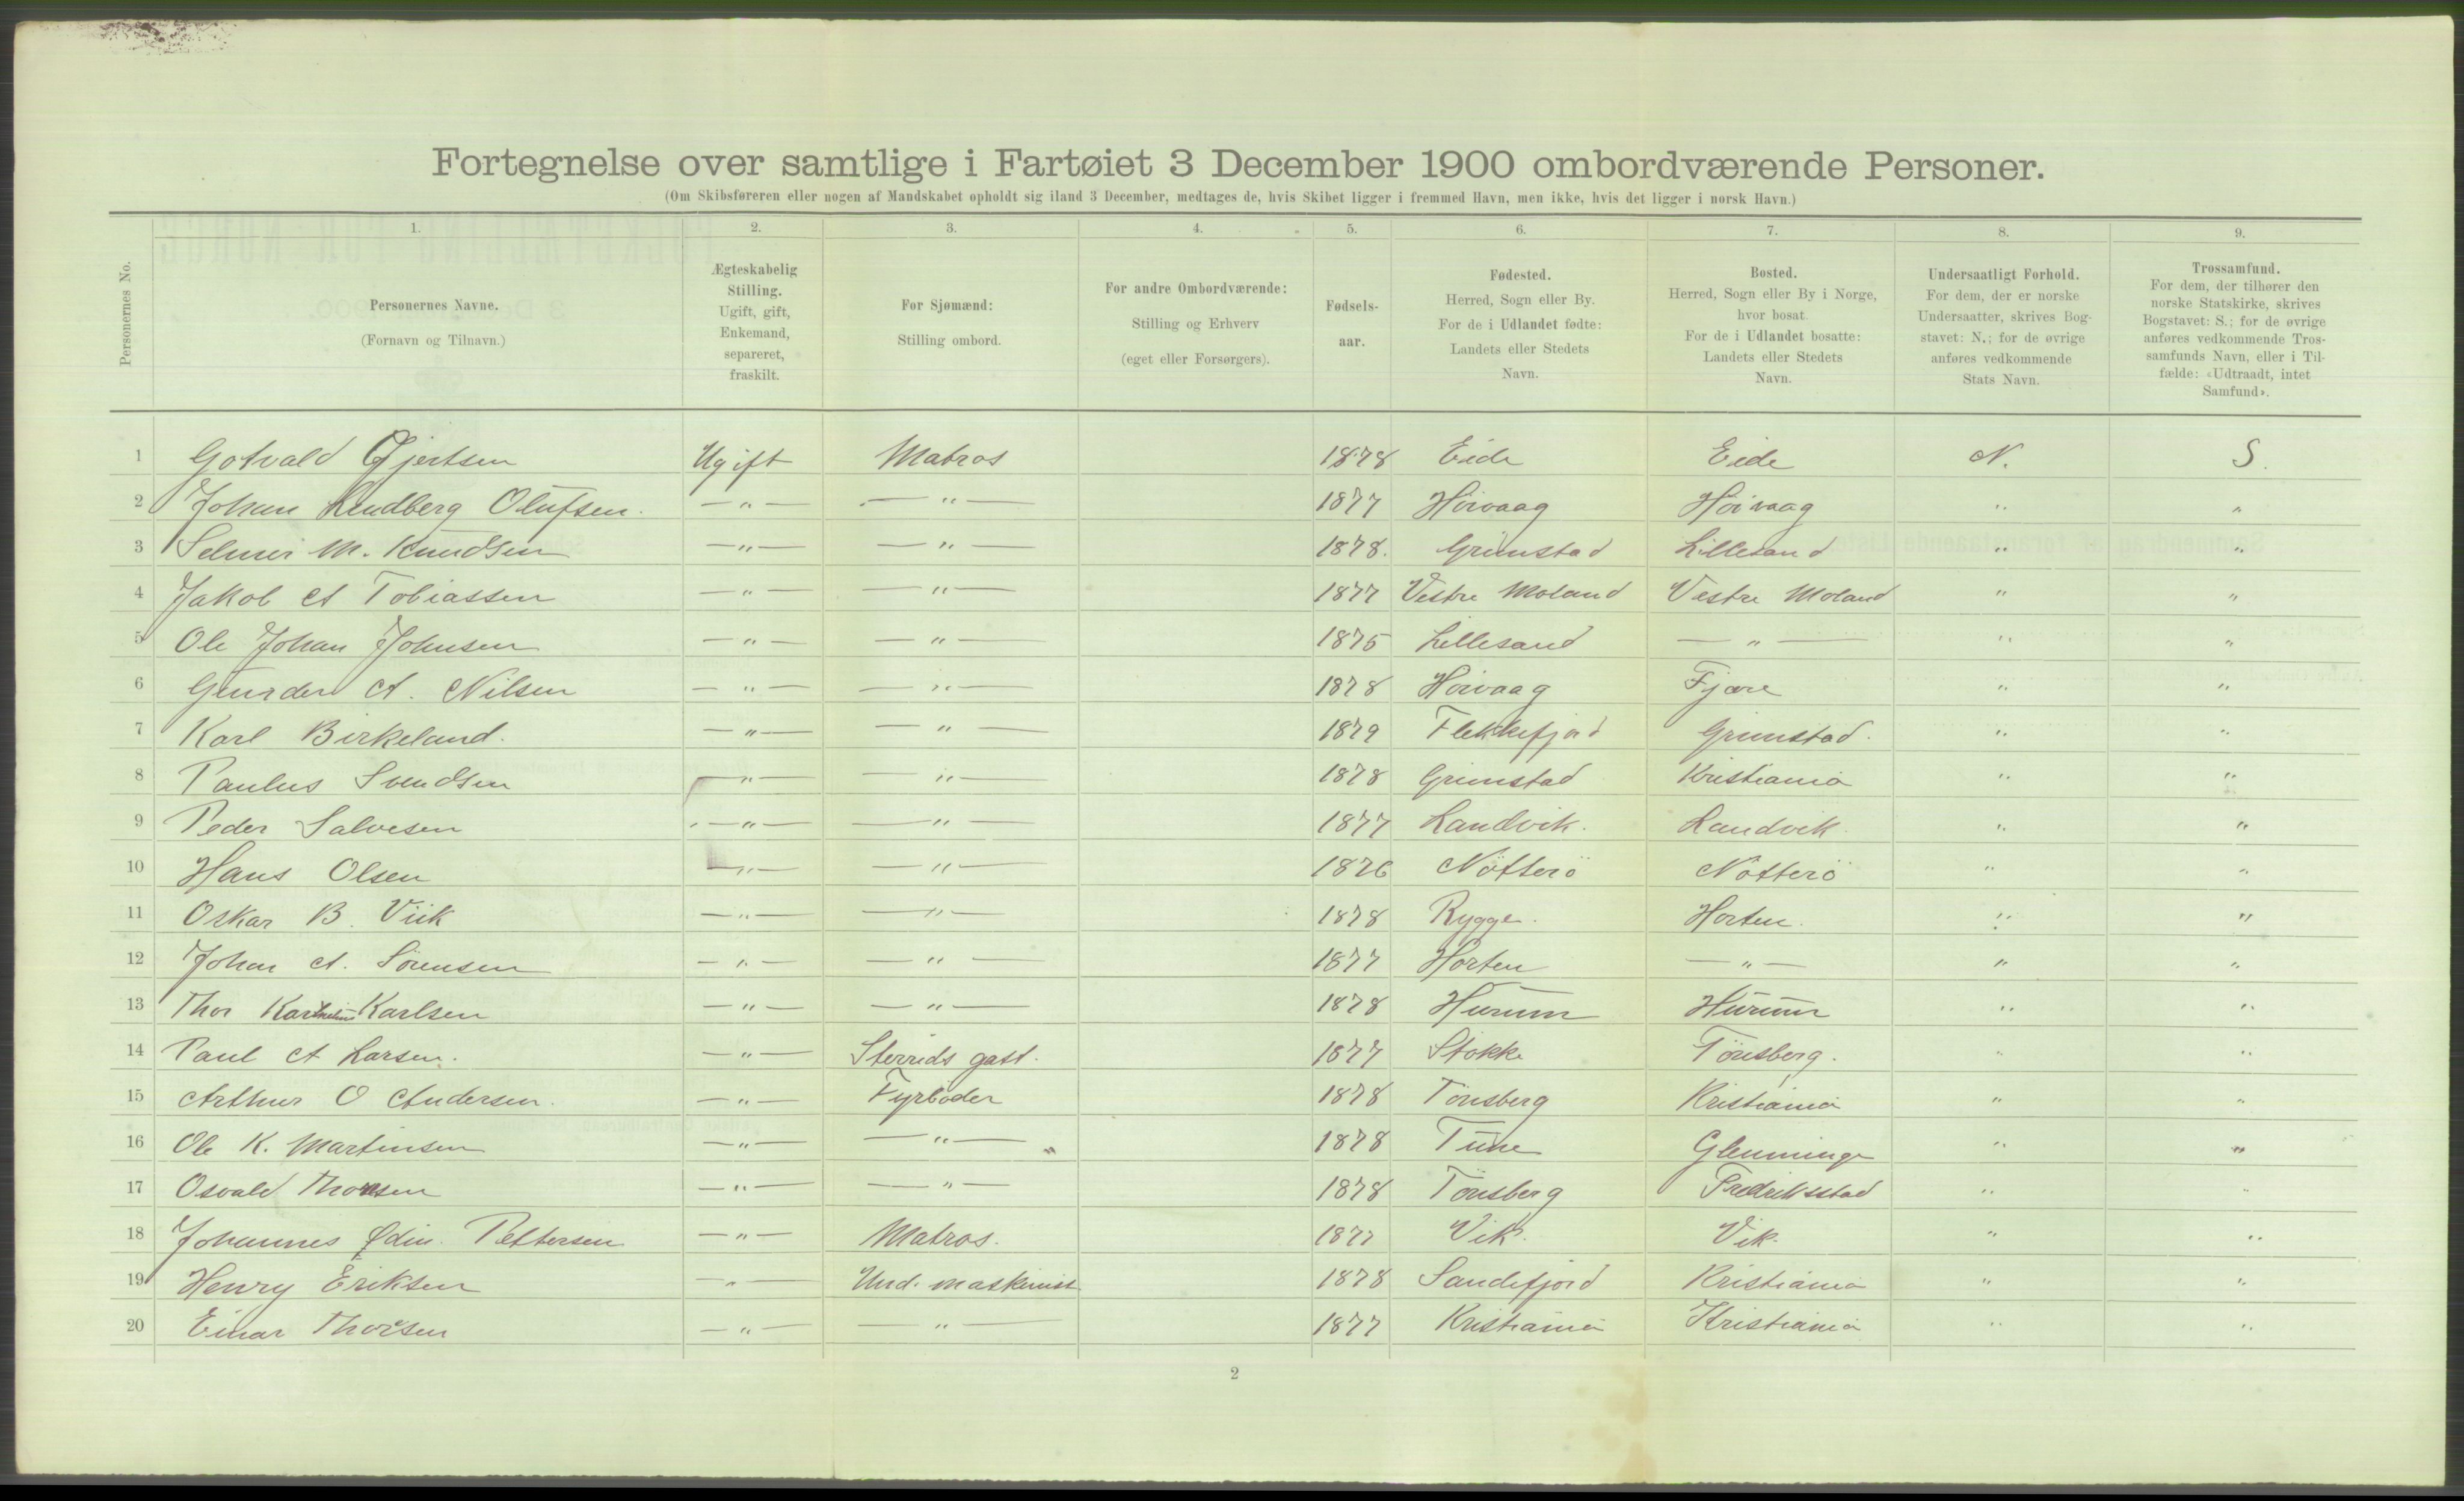 Fortegnelse over samtlige i Fartøiet 3 December 1900 ombordværende Personer.
(Om Skibsføreren eller nogen af Mandskabet opholdt sig iland 3 December, medtages de, hvis Skibet ligger i fremmed Havn, men ikke, hvis det ligger i norsk Havn.)
Personernes No.
1.
Personernes Navne.
(Fornavn og Tilnavn.)
2.
Ægteskabelig
Stilling.
Ugift, gift,
Enkemand,
separeret,
fraskilt.
3.
For Sjømænd:
Stilling ombord.
4.
For andre Ombordværende:
Stilling og Erhverv
(eget eller Forsørgers).
5.
Fødsels-
aar.
6.
Fødested.
Herred, Sogn eller By.
For de i Udlandet fødte:
Landets eller Stedets
Navn.
7.
Bosted.
Herred, Sogn eller By i Norge,
hvor bosat.
For de i Udlandet bosatte:
Landets eller Stedets
Navn.
8.
Undersaatligt Forhold.
For dem, der er norske
Undersaatter, skrives Bog-
stavet: N.; for de øvrige
anføres vedkommende
Stats Navn.
9.
Trossamfund.
For dem, der tilhører den
norske Statskirke, skrives
Bogstavet: S.; for de øvrige
anføres vedkommende Tros-
samfunds Navn, eller i Til-
fælde: «Udtraadt, intet
Samfund».
1 Gotvald Gjertsen Ugift Matros 1878 Eide Eide N. S.
2 Johan Lindberg Olufsen. — " — — " — 1877 Höivaag Höivaag " "
3 Selmer M. Knudsen — " — — " — 1878. Grimstad Lillesand " "
4 Jakob A Tobiassen — " — — " — 1877 Vestre Moland Vestre Moland " "
5 Ole Johan Johnsen — " — — " — 1875 Lillesand — " — " "
6 A. Nilsen — " — — " — 1878 Höivaag Fjære " "
7 Karl Birkeland. — " — — " — 1879 Flekkefjord Grimstad. " "
8 Paulus Svendsen — " — — " — 1878 Grimstad Kristiania " "
9 Peder Salvesen — " — — " — 1877 Landvik. Landvik " "
10 Hans Olsen — " — — " — 1876 Nötterö Nötterö " "
11 Oskar B. Viik — " — — " — 1878 Rygge. Horten. " "
12 Johan A. Sörensen — " — — " — 1877 Horten — " — " "
13 Thor Karlsen — " — — " — 1878 Hurum Hurum " "
14 Paul A Larsen. — " — gast. 1877 Stokke Tönsberg. " "
15 Arthur O Andersen. — " — Fyrböder 1878 Tönsberg Kristiania " "
16 Ole K. Martinsen — " — — " — " 1878 Tune Glemminge " "
17 Osvald Thorsen — " — — " — 1878 Tönsberg Fredriksstad " "
18 Johannes Ødin. Pettersen — " — Matros. 1877 Vik. Vik. " "
19 Henry Eriksen — " — Und. maskinist 1878 Sandefjord Kristiania " "
20 Einar Thorsen — " — — " — 1877 Kristiania Kristiania " "
2